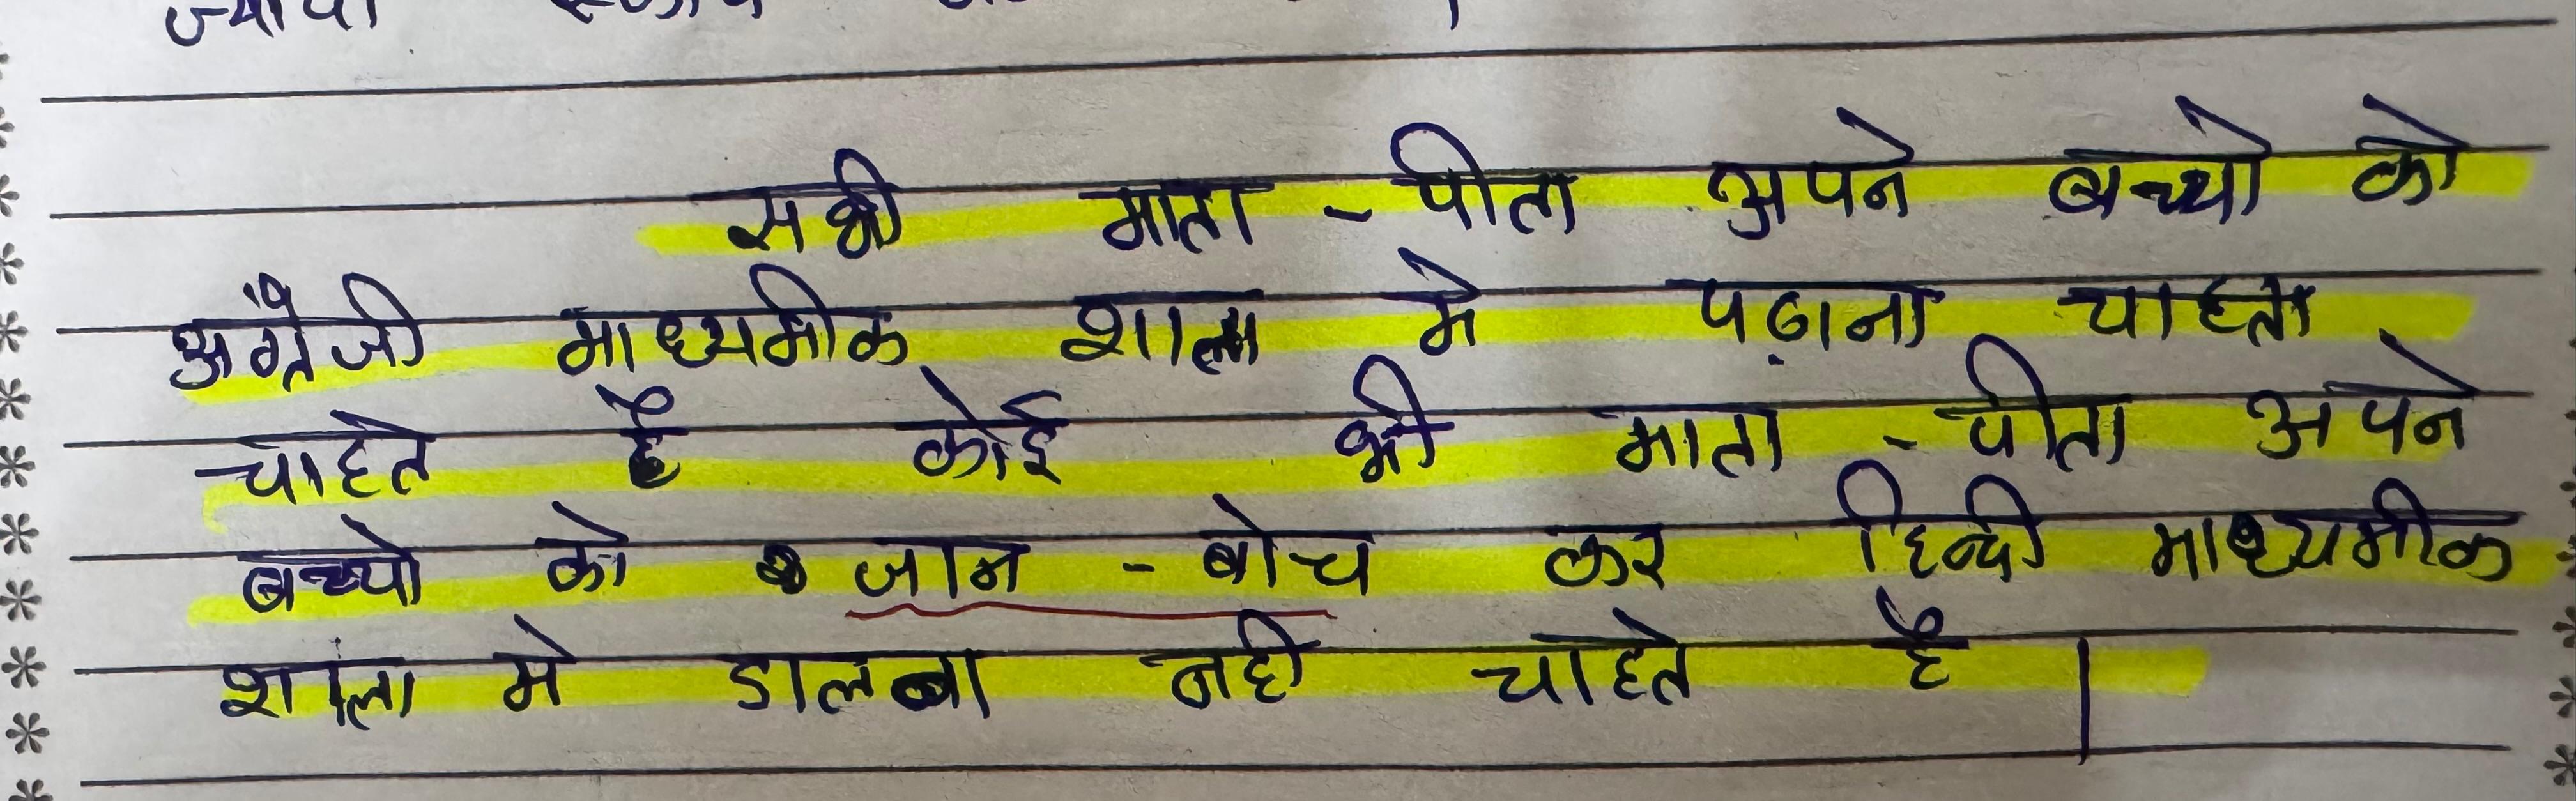 सभी माता - पीता अपने बच्चो को
अंग्रेजी माध्यमीक शाला मे पढ़ाना चाहता
चाहते है कोई भी माता - पीता अपने
बच्चो को जान - बोच कर हिन्दी माध्यमीक
शाला मे डालना नही चाहते है |